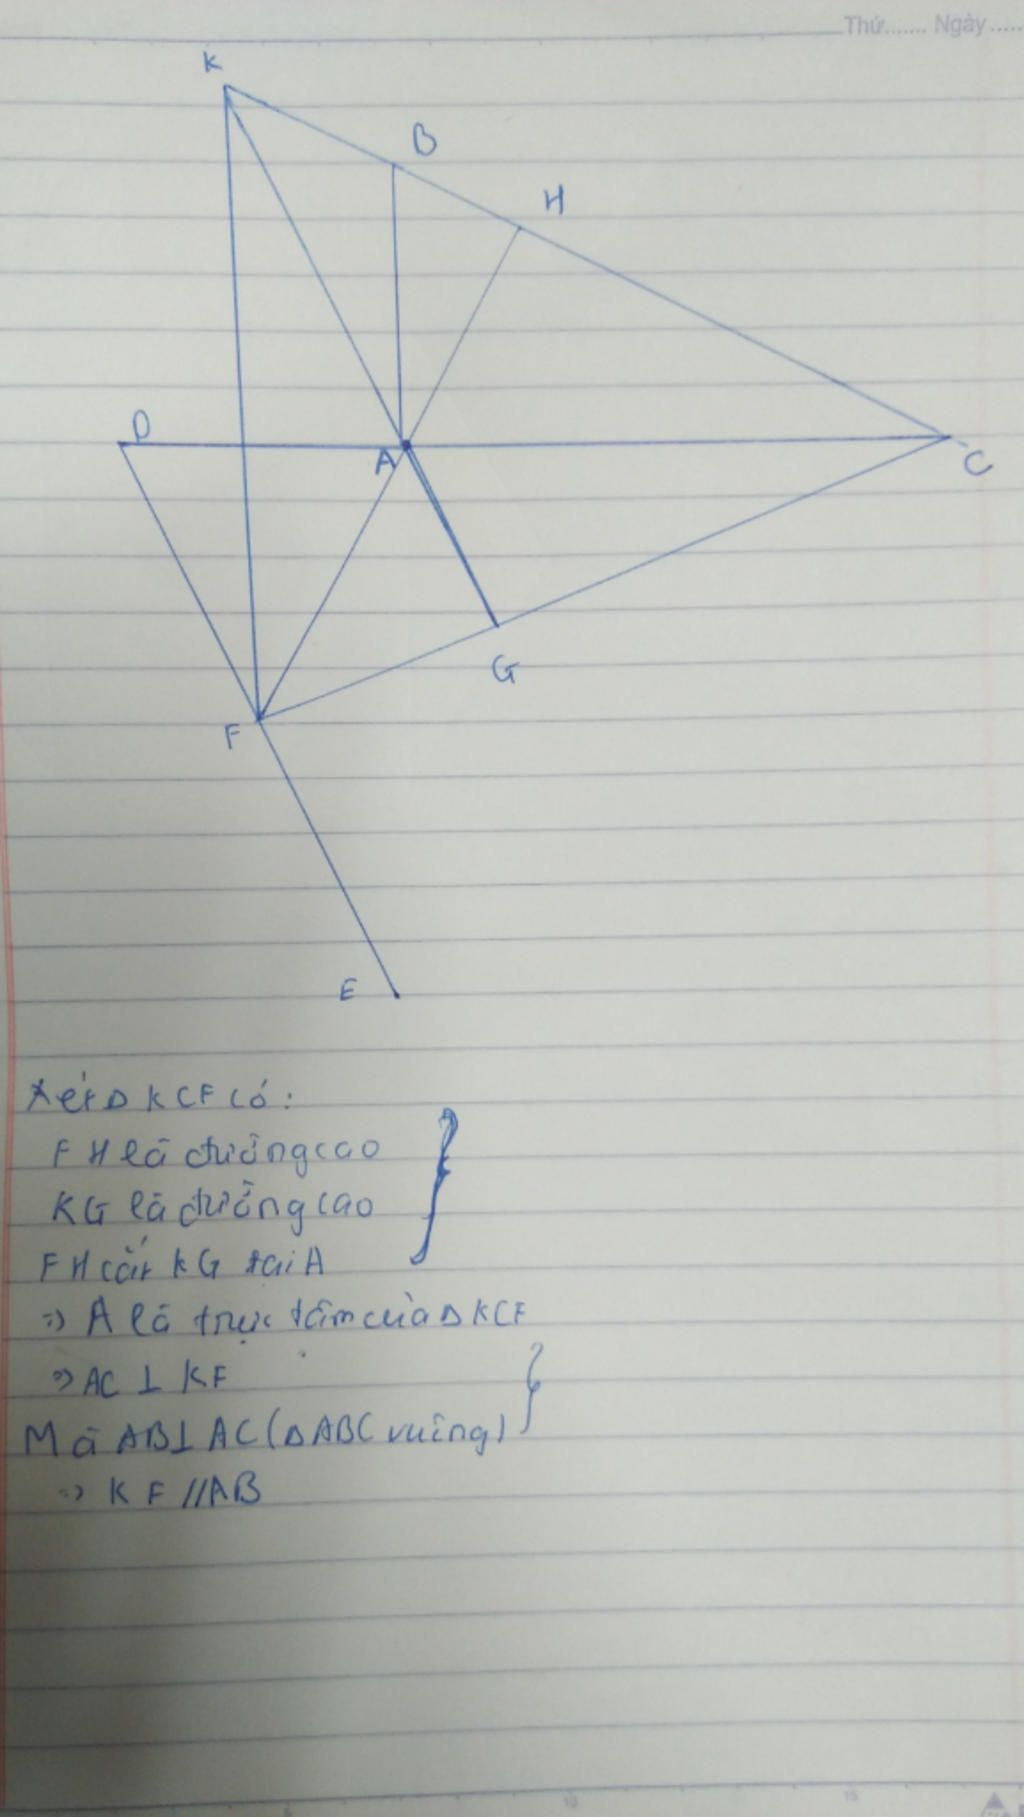 Thứ....... Ngày.....
K
B
H
D
A
C
G
F
E
Xét Δ KCF có:
FH là đường cao
KG là đường cao
FH cắt KG tại A
=> A là trực tâm của Δ KCF
=> AC ⊥ KF
Mà AB ⊥ AC (Δ ABC vuông)
=> KF // AB
10
15